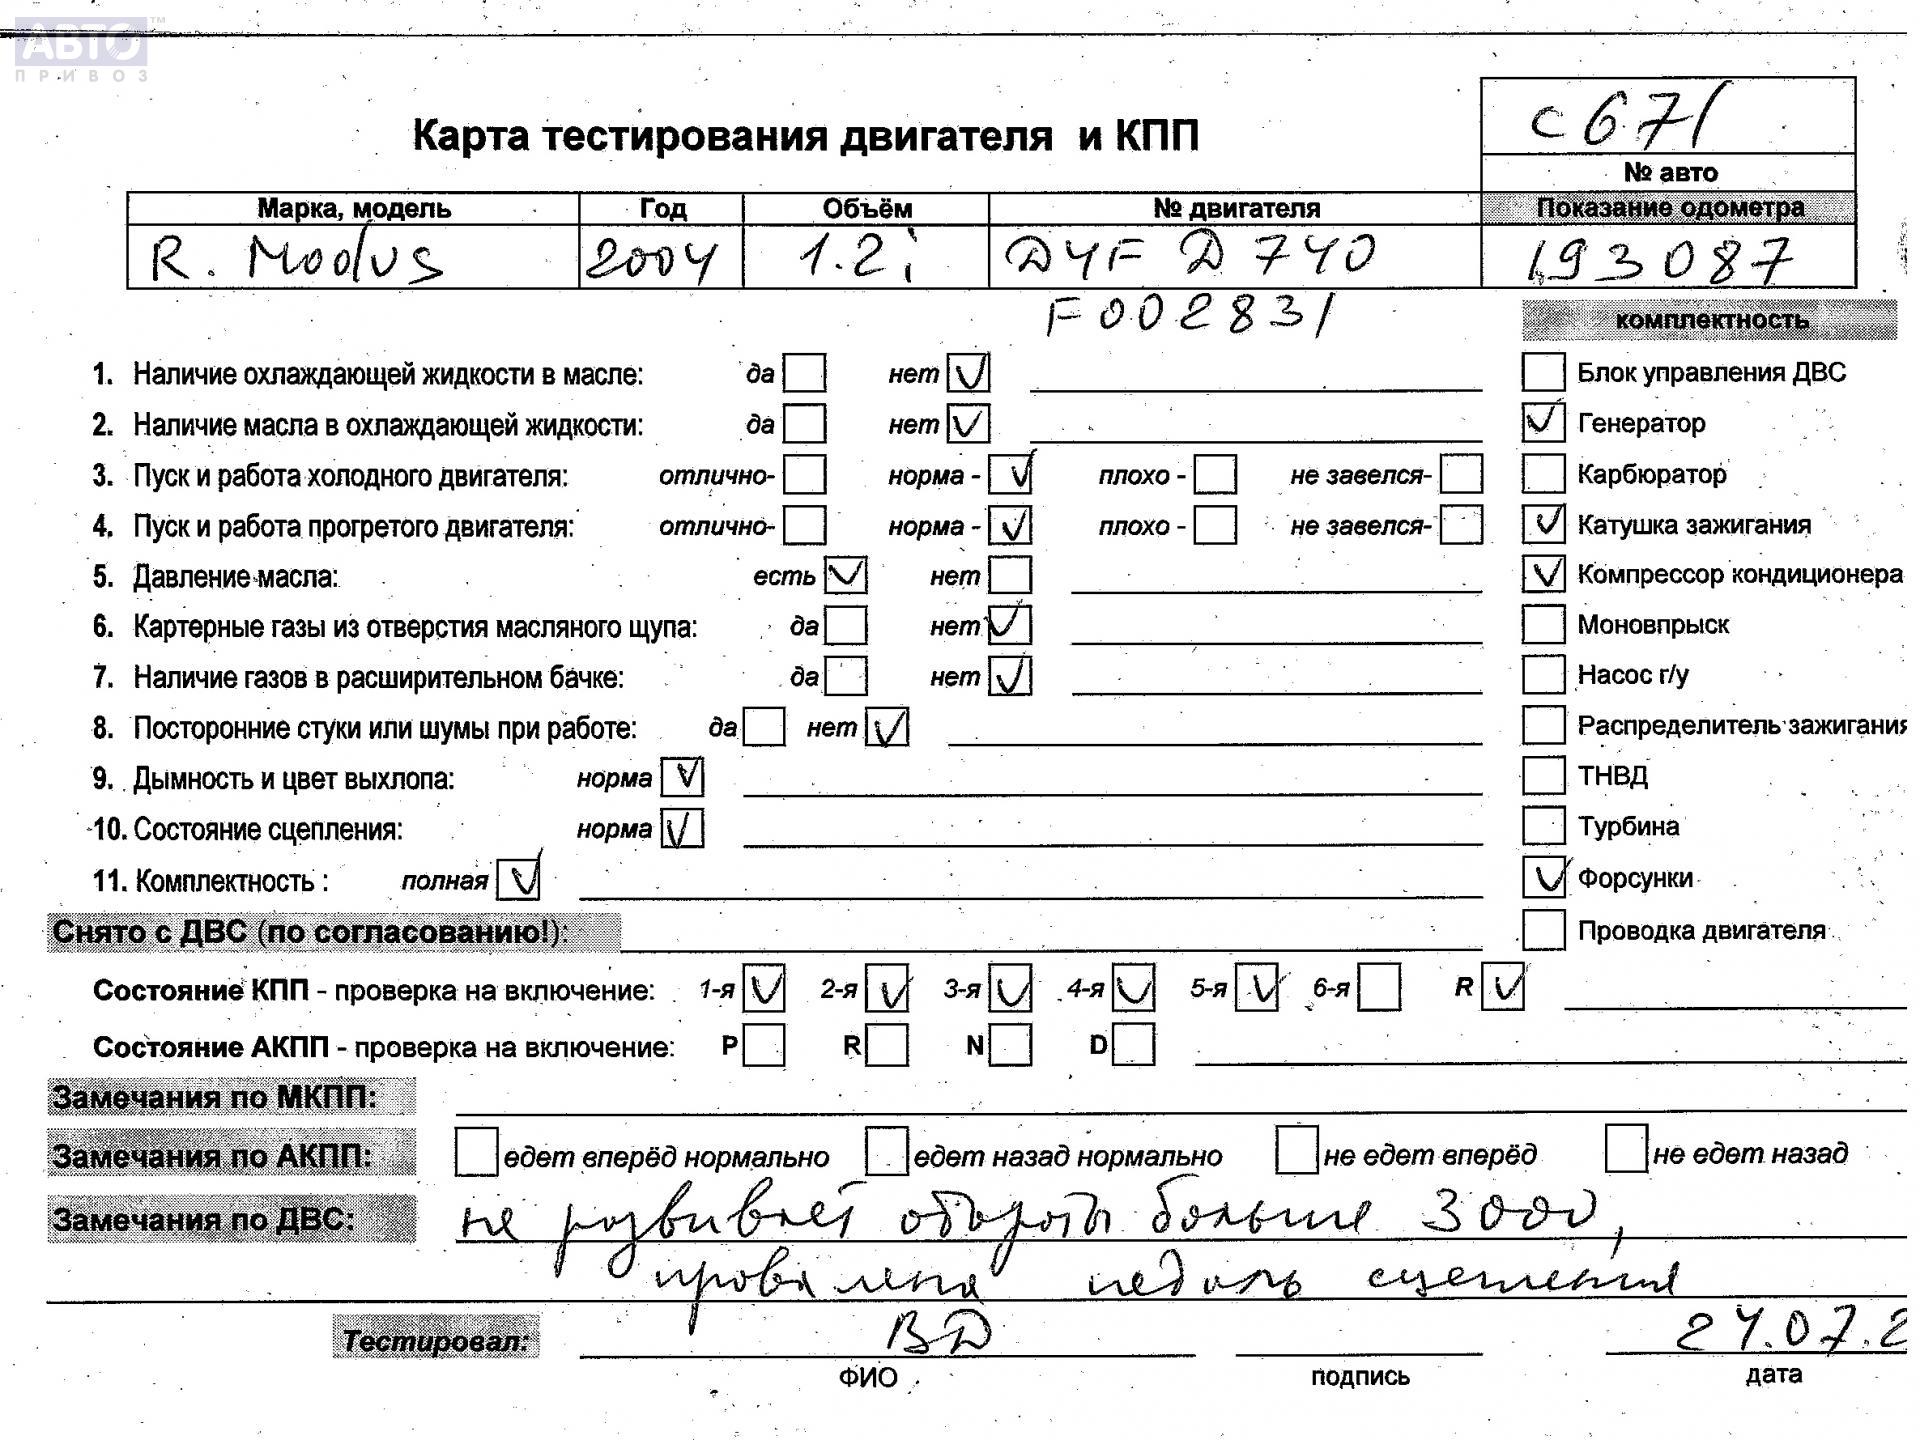 АВТО™
ПРИВОЗ
с 671
Карта тестирования двигателя и КПП
№ авто
Марка, модель Год Объём № двигателя Показание одометра
R. Modus 2004 1.2i D4F D 740 193087
F002831
комплектность
1. Наличие охлаждающей жидкости в масле: да нет ✓ Блок управления ДВС
2. Наличие масла в охлаждающей жидкости: да нет ✓ ✓ Генератор
3. Пуск и работа холодного двигателя: отлично- норма - ✓ плохо - не завелся- Карбюратор
4. Пуск и работа прогретого двигателя: отлично- норма - ✓ плохо - не завелся- ✓ Катушка зажигания
5. Давление масла: есть ✓ нет ✓ Компрессор кондиционера
6. Картерные газы из отверстия масляного щупа: да нет ✓ Моновпрыск
7. Наличие газов в расширительном бачке: да нет ✓ Насос г/у
8. Посторонние стуки или шумы при работе: да нет ✓ Распределитель зажигания
9. Дымность и цвет выхлопа: норма ✓ ТНВД
10. Состояние сцепления: норма ✓ Турбина
11. Комплектность : полная ✓ ✓ Форсунки
Снято с ДВС (по согласованию!): Проводка двигателя
Состояние КПП - проверка на включение: 1-я ✓ 2-я ✓ 3-я ✓ 4-я ✓ 5-я ✓ 6-я R ✓
Состояние АКПП - проверка на включение: P R N D
Замечания по МКПП:
Замечания по АКПП: едет вперёд нормально едет назад нормально не едет вперёд не едет назад
Замечания по ДВС: не розвивает обороты больше 3000,
провалена педаль сцепления
Тестировал: ВД 24.07.2
ФИО подпись дата